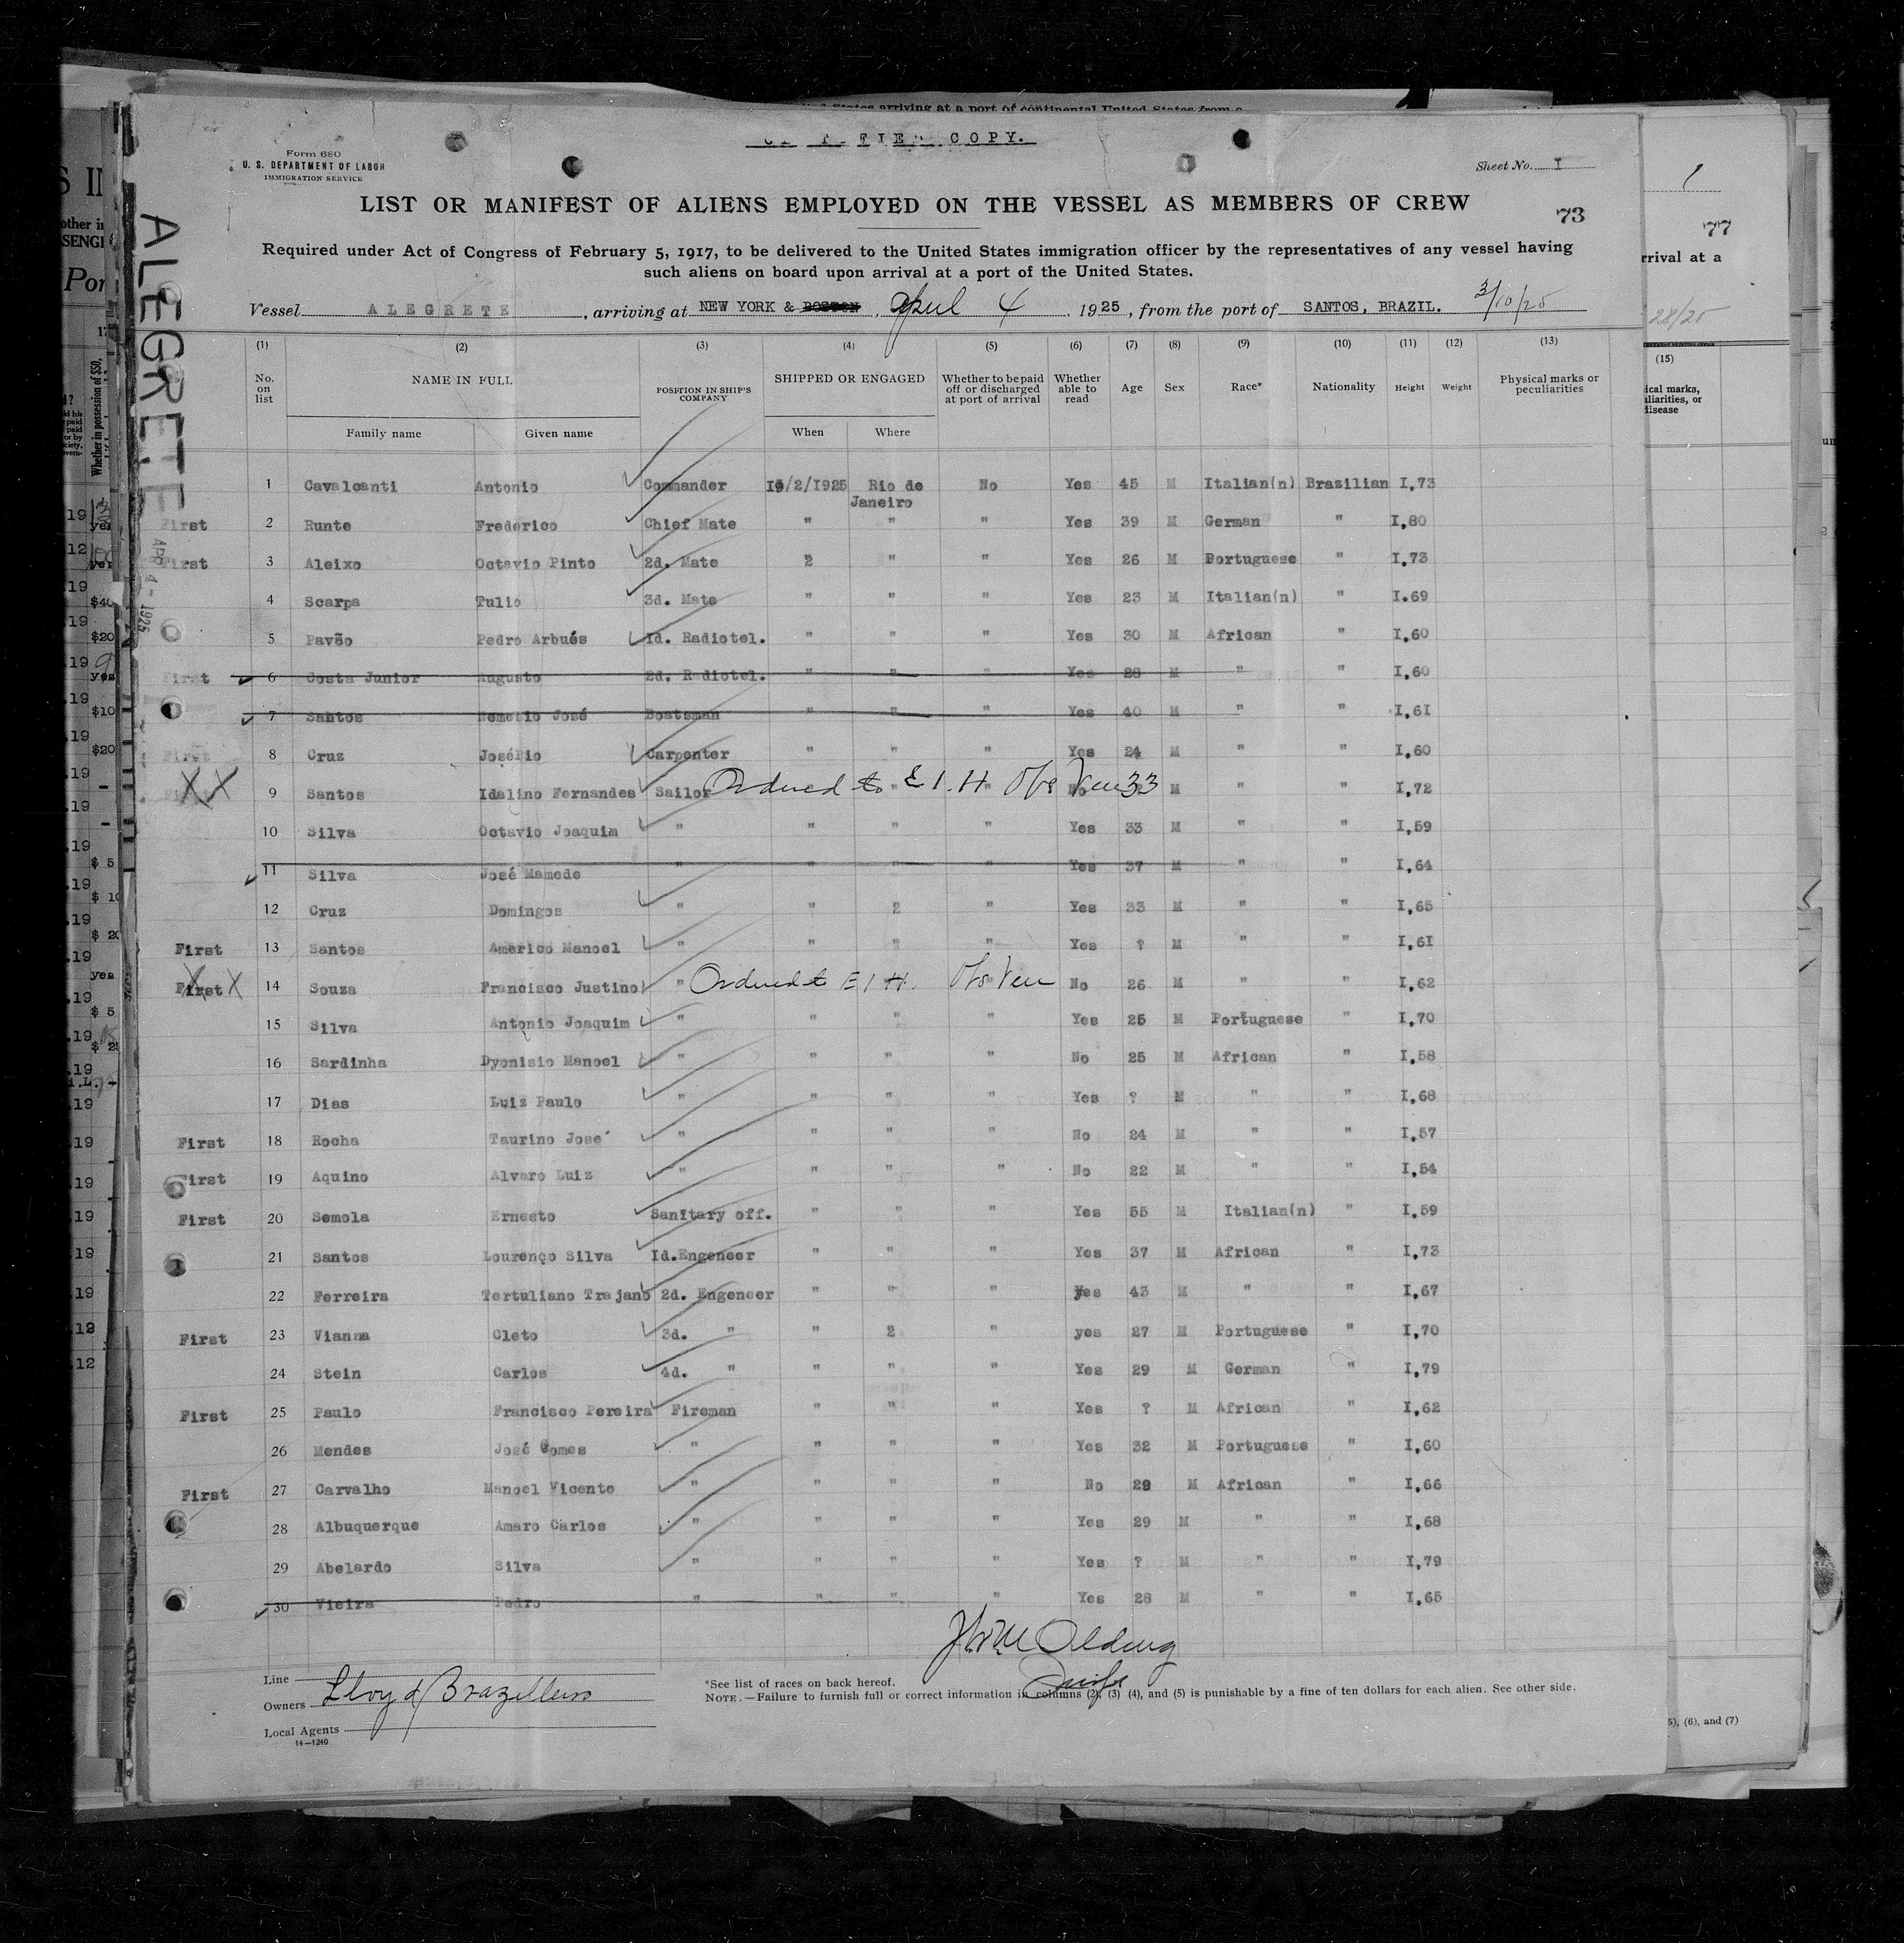 COPY.
Form 680
U. S. DEPARTMENT OF LABOR
IMMIGRATION SERVICE
Sheet No. I
LIST OR MANIFEST OF ALIENS EMPLOYED ON THE VESSEL AS MEMBERS OF CREW
73
Required under Act of Congress of February 5, 1917, to be delivered to the United States immigration officer by the representatives of any vessel having
such aliens on board upon arrival at a port of the United States.
Vessel ALEGRETE, arriving at NEW YORK & BOSTON, April 4, 1925, from the port of SANTOS, BRAZIL. 3/10/25
ALEGRETE
APR 4 - 1925
(1) (2) (3) (4) (5) (6) (7) (8) (9) (10) (11) (12) (13)
No. on list NAME IN FULL POSITION IN SHIP'S COMPANY SHIPPED OR ENGAGED Whether to be paid off or discharged at port of arrival Whether able to read Age Sex Race* Nationality Height Weight Physical marks or peculiarities
Family name Given name When Where
1 Cavalcanti Antonio Commander /2/1925 Rio de Janeiro No Yes 45 M Italian(n) Brazilian I,73
First 2 Runte Frederico Chief Mate " " " Yes 39 M German " I,80
First 3 Aleixo Octavio Pinto 2d. Mate 2 " " Yes 26 M Portuguese " I,73
4 Scarpa Tulio 3d. Mate " " " Yes 23 M Italian(n) " I.69
5 Pavão Pedro Arbués Id. Radiotel. " " " Yes 30 M African " I,60
First 6 Costa Junior Augusto 2d. Radiotel. " " " Yes 28 M " " I,60
7 Santos Nemesio José Boatsman " " " Yes 40 M " " I,61
First 8 Cruz José Pio Carpenter " " " Yes 24 M " " I,60
First XX 9 Santos Idalino Fernandes Sailor Ordered to E.I.H 33 M " " I,72
10 Silva Octavio Joaquim " " " " Yes 33 M " " I,59
11 Silva José Mamede " " " " Yes 37 M " " I,64
12 Cruz Domingos " " 2 " Yes 33 M " " I,65
First 13 Santos Americo Manoel " " " " Yes ? M " " I,61
First XX 14 Souza Francisco Justino " Ordered to E I H. No 26 M " " I,62
15 Silva Antonio Joaquim " " " " Yes 25 M Portuguese " I,70
16 Sardinha Dyonisio Manoel " " " " No 25 M African " I,58
17 Dias Luiz Paulo " " " " Yes ? M " " I,68
First 18 Rocha Taurino José " " " " No 24 M " " I,57
First 19 Aquino Alvaro Luiz " " " " No 22 M " " I,54
First 20 Semola Ernesto Sanitary off. " " " Yes 55 M Italian(n) " I,59
21 Santos Lourenço Silva Id.Engeneer " " " Yes 37 M African " I,73
22 Ferreira Tertuliano Trajano 2d. Engeneer " " " yes 43 M " " I,67
First 23 Vianna Cleto 3d. " " 2 " yes 27 M Portuguese " I,70
24 Stein Carlos 4d. " " " " Yes 29 M German " I,79
First 25 Paulo Francisco Pereira Fireman " " " Yes ? M African " I,62
26 Mendes José Gomes " " " " Yes 32 M Portuguese " I,60
First 27 Carvalho Manoel Vicente " " " " No 29 M African " I,66
28 Albuquerque Amaro Carlos " " " " Yes 29 M " " I,68
29 Abelardo Silva " " " " Yes ? M " " I,79
30 Vieira Pedro " " " " Yes 28 M " " I,65
Line
Owners Lloyd Brazileiro
Local Agents
14—1240
*See list of races on back hereof.
NOTE.—Failure to furnish full or correct information in columns (2), (3) (4), and (5) is punishable by a fine of ten dollars for each alien. See other side.
1
77
rrival at a
28/25
(15)
ical marks,
liarities, or
disease
5), (6), and (7)